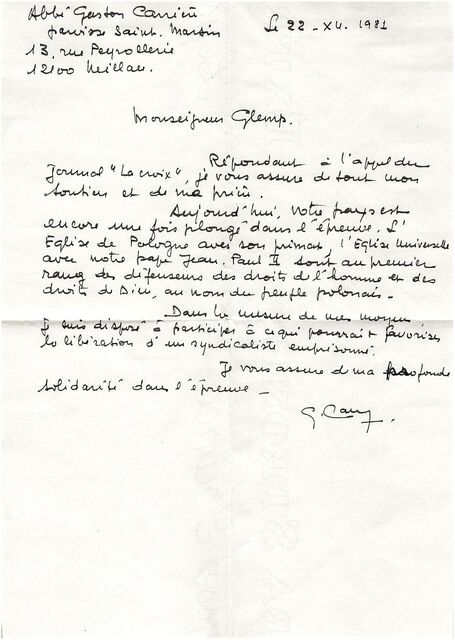 Abbé Gaston Carrière
paroisse Saint. Martin
13, rue Peyrollerie
12100 Millau.
Le 22 - XII. 1981
Monseigneur Glemp.
Répondant à l'appel du
Journal "La croix", je vous assure de tout mon
soutien et de ma prière.
Aujourd'hui, votre pays est
encore une fois plongé dans l'épreuve. L'
Eglise de Pologne avec son primat, l'Eglise Universelle
avec notre pape Jean. Paul II sont au premier
rang des défenseurs des droits de l'homme et des
droits de Dieu, au nom du peuple polonais -
Dans la mesure de mes moyens
je suis disposé à participer à ce qui pourrait favoriser
la libération d'un syndicaliste emprisonné.
Je vous assure de ma profonde
solidarité dans l'épreuve -